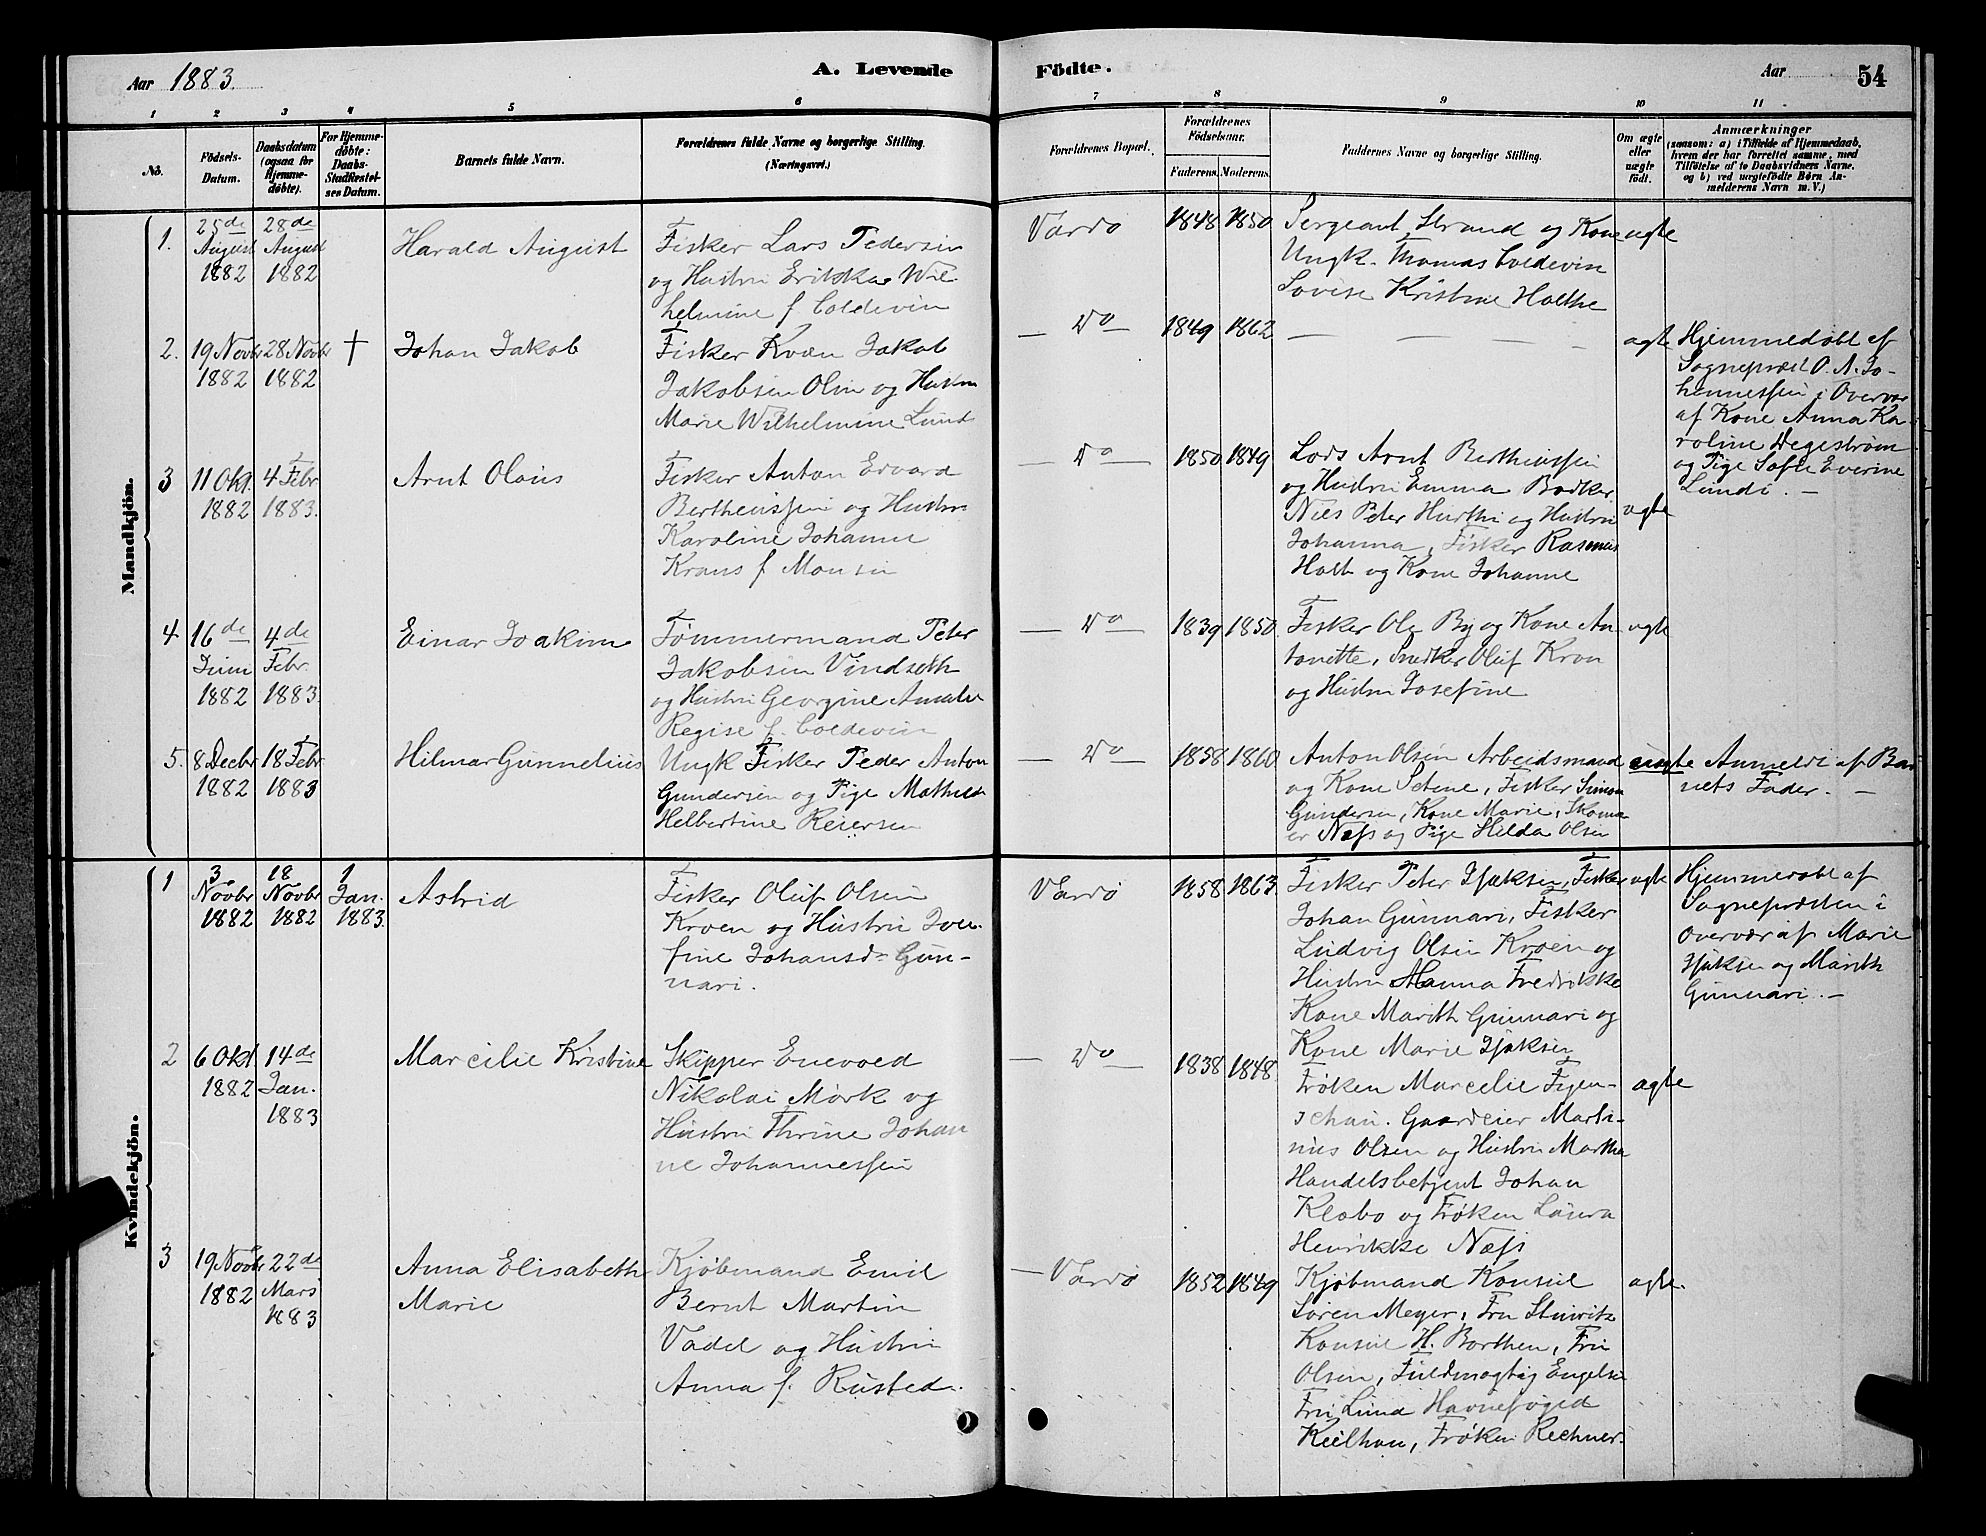 Aar 1883.
A. Levende Födte.
Aar
54
1 2 3 4 5 6 7 8 9 10 11
No.
Födsels-Datum.
Daabsdatum (ogsaa for Hjemme-döbte).
For Hjemme-döbte: Daabs-Stadfæstel-ses Datum.
Barnets fulde Navn.
Forældrenes fulde Navne og borgerlige Stilling. (Næringsvei.)
Forældrenes Bopæl.
Forældrenes Födselsaar.
Faderens. Moderens.
Faddernes Navne og borgerlige Stilling.
Om ægte eller uægte födt.
Anmærkninger
(saasom: a) i Tilfælde af Hjemmedaab, hvem der har forrettet samme, med Tilföielse af to Daabsvidners Navne, og b) ved uægtefödte Børn Anmelderens Navn m. V.)
Mandkjön.
1. 25de August 1882
28de August 1882
Harald August
Fisker Lars Pedersen
og Hustru Erikka Wil
helmine f. Coldevin
Vardö
1848 1850
Sergeant Strand og Kone
Ungk. Thomas Coldevin
Lovise Kristine Holthe
ægte
2. 19 Novbr 1882
28 Novbr 1882
†
Johan Jakob
Fisker Kvæn Jakob
Jakobsen Olin og Hustru
Marie Wilhelmine Lund
— Do —
1849 1862
— — — —
ægte
Hjemmedøbt af
Sognepræst O. A. Jo-
hannessen i Overvær
af Kone Anna Ka-
roline Degerstrøm
og Pige Sofie Everine
Lundi. —
3 11 Okt. 1882
4 Febr 1883.
Arnt Olaus
Fisker Anton Edvard
Bertheussen og Hustru
Karoline Johanne
Kraus f. Monsen
— Do —
1850 1849
Lods Arnt Bertheussen
og Hustru Emma Bødker
Niels Peter Hurthi og Hustru
Johanna, Fisker Rasmus
Holt og Kone Johanne
ægte
4 16de Juni 1882
4de Febr. 1883
Einar Joakim
Tømmermand Peter
Jakobsen Vindseth
og Hustru Georgine Amalie
Regise f. Coldevin
— Do —
1839 1850
Fisker Ole By og Kone An
tonette, Snedker Oluf Kron
og Hustru Josefine
ægte
5. 8 Decbr 1882
18 Febr 1883
Hilmar Gunnelius
Ungk Fisker Peder Anton
Gundersen og Pige Mathilde
Helbertine Reiersen
— Do —
1858 1860
Anton Olsen Arbeidsmand
og Kone Setine, Fisker Simon
Gundersen, Kone Marie, Skoma
er Næss og Pige Hilda Olsen
uægte
Anmeldt af Bar
nets Fader. —
Kvindekjön.
1 3 Novbr 1882
18 Novbr 1882
1 Jan. 1883.
Astrid
Fisker Oluf Olsen
Kroen og Hustru Jose-
fine Johansd. Gun-
nari.
Vardö
1858 1863
Fisker Peter Isaksen, Fisker
Johan Gunnari, Fisker
Ludvig Olsen Kroen og
Hustru Hanna Fredrikke
Kone Marith Gunnari og
Kone Marie Isaksen
ægte
Hjemmedøbt af
Sognepræsten i
Overvær af Marie
Isaksen og Marith
Gunnari. —
2 6 Okt 1882
14de Jan. 1883
Marcilie Kristine
Skipper Enevold
Nikolai Mørk og
Hustru Thrine Johan
ne Johannessen
— Do —
1838 1848
Frøken Marcelie Fyen-
schau. Gaardeier Marti-
nus Olsen og Hustru Martha
Handelsbetjent Johan
Klæbo og Frøken Laura
Henrikke Næss
ægte
3 19 Novbr 1882
22de Mars 1883
Anna Elisabeth
Marie
Kjøbmand Emil
Bernt Martin
Vadel og Hustru
Anna f. Rusted.
— Vardö
1852 1849
Kjøbmand Konsul
Søren Meyer, Fru Steinritz
Konsul H. Borthen, Fru
Olsen, Fuldmægtig Engelsen
Fru Lund Havnefoged
Keilhau, Frøken Rechner.
ægte.